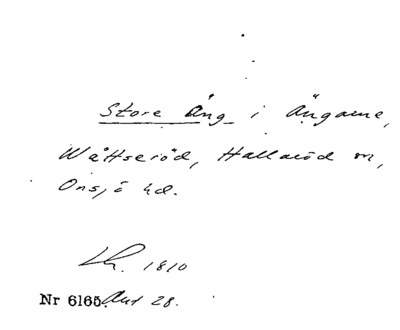 Store Äng i Ängarne,
Wättseröd, Hallaröd sn,
Onsjö hd.
Lh. 1810
Nr 6165. Akt 28.